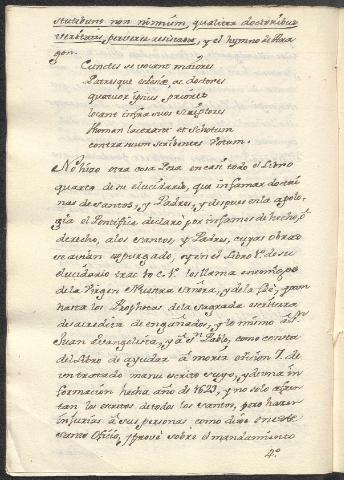 non nimium, qualiter doctoribus
veritatis perverse resistant, y el hymno de Ara
gon.
Cunctos se vocant maiores
Patresque ecclesiæ, ac doctores
quatuor ipsius priores
locant infra suos scriptores
Thomam lacerant et Schotum
contra suum scribentes votum.
No hizo otra cosa Poza en casi todo el Libro
quarto de su elucidario, que infamar doctri
nas de Santos, y Padres, y despues en la apolo
gia al Pontifice declaró por infames de hecho, y
derecho, a los Santos, y Padres, cuyas obras
se avian expurgado, y en el Libro 4º de su
elucidario trac to c. los llama enemigos
de la Virgen Nuestra Señora, y de la fee, y aun
hasta los Prophetas de la sagrada escritura
desacredita de engañados, y lo mismo a Sn
Juan Evangelista, y à Sn Pablo, como consta
del Libro de ayudar à morir oficion 7. de
un tratado manu escrito suyo, y de una in
formacion hecha año de 1629, y no solo afren
tan los escritos de todos los Santos, pero hazen
injurias à sus personas como dixo en este
santo Oficio, y provè sobre el mandamiento
4º